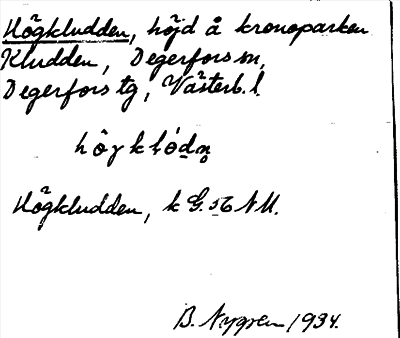 Högkludden, höjd å kronoparken
Kludden, Degerfors sn,
Degerfors tg, Västerb. l.
Högkludden, k G. st N M.
B. Nygren 1934.